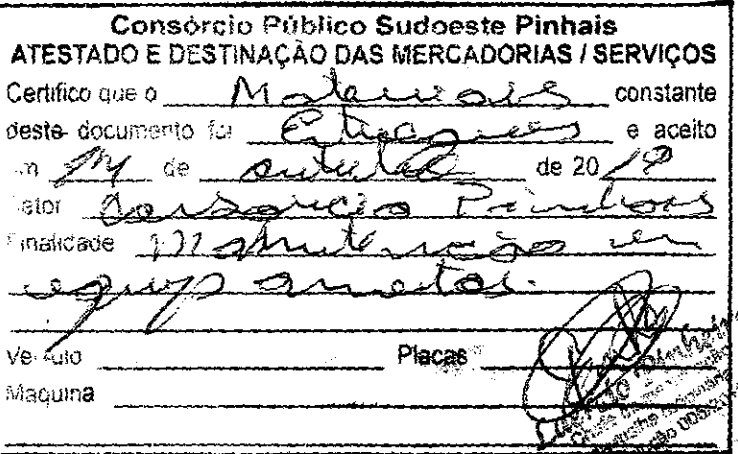 Consórcio Público Sudoeste Pinhais
ATESTADO E DESTINAÇÃO DAS MERCADORIAS / SERVIÇOS
Certifico que o Materiais constante
deste documento foi Entregues e aceito
em de outubro de 20
Setor Consórcio Pinhais
Finalidade Manutenção em
equipamentos.
Veículo Placas
Maquina
Pinheiro